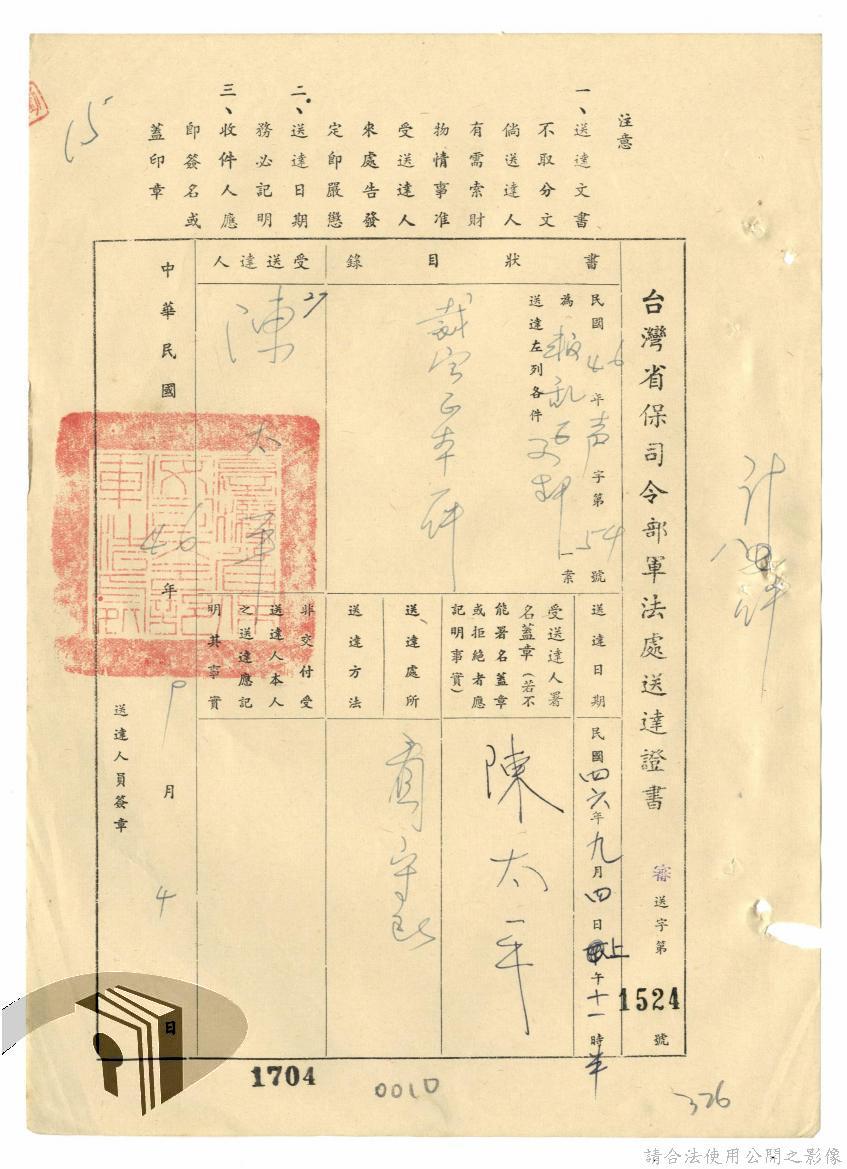 注意
一、送達文書
不取分文
倘送達人
有需索財
物情事准
受送達人
來處告發
定即嚴懲
二、送達日期
務必記明
三、收件人應
即簽名或
蓋印章
15
台灣省保司令部軍法處送達證書
審送字第1524號
書狀目錄
民國46年声字第54號
為叛乱
一案
送達左列各件
裁定正本
受送達人
27
陳太平
送達日期
民國四六年九月四日上午十一時半
受送達人署
名蓋章(若不
能署名蓋章
或拒絕者應
記明事實)
陳太平
送達處所
送達方法
非交付受
送達人本人
之送達應記
明其事實
中華民國46年9月4日
送達人員簽章
1704
0010
326
請合法使用公開之影像